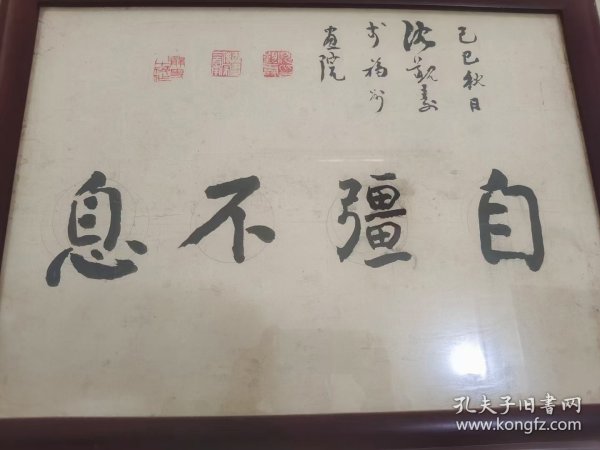 自彊不息
己巳秋日
沈觐寿
于福州
画院
孔夫子旧书网
www.kongfz.com